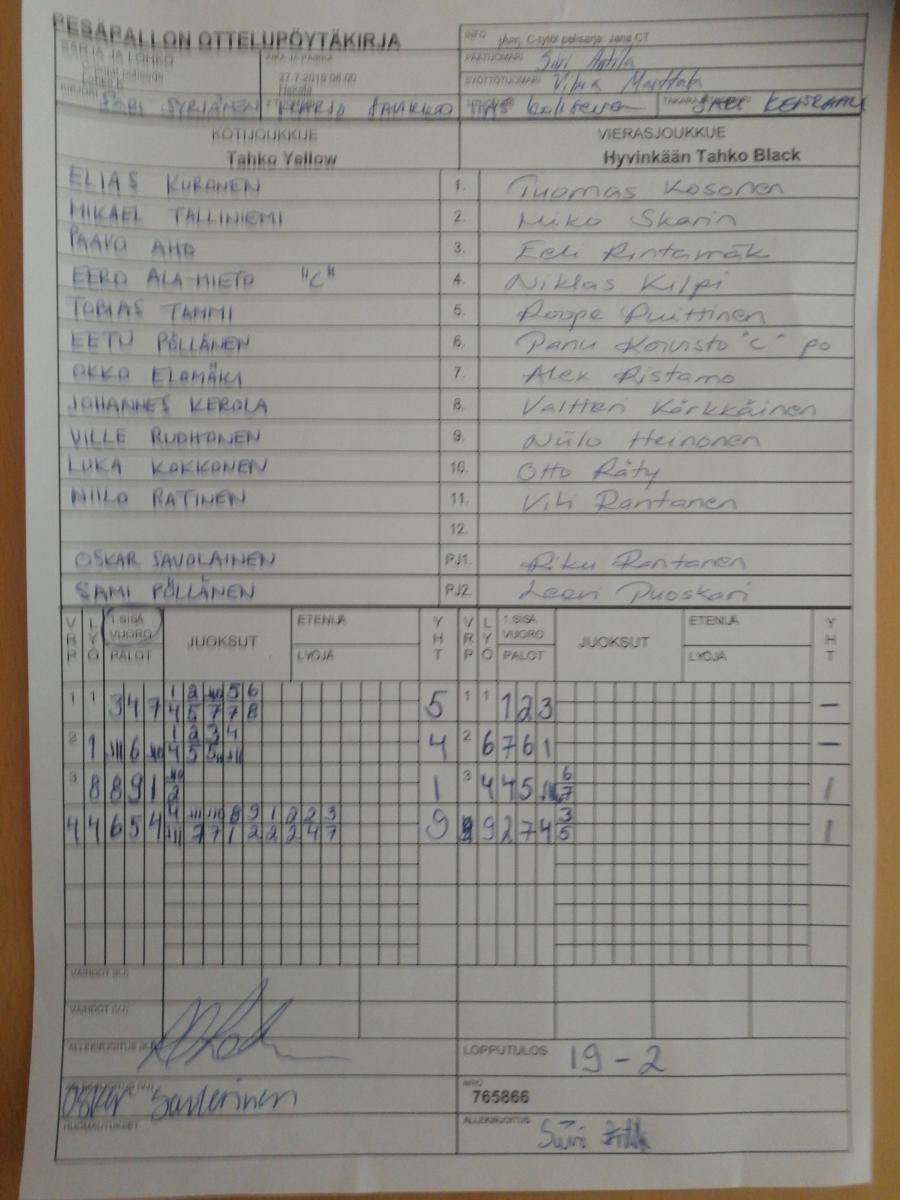 PESÄPALLON OTTELUPÖYTÄKIRJA
INFO C-tytöt pelisarja, Jana CT
SARJA JA LOHKO AIKA JA PAIKKA PÄÄTUOMARI Siiri Anttila
27.7.2019 08:00 SYÖTTÖTUOMARI Marttala
SARI SYRJÄNEN
KOTIJOUKKUE VIERASJOUKKUE
Tahko Yellow Hyvinkään Tahko Black
ELIAS KURONEN 1. Tuomas Kosonen
MIKAEL TALLINIEMI 2. Miko Skarin
PAAVO AHO 3. Eeli Rintamäk
EERO ALA-MIETO "C" 4. Niklas Kilpi
TOBIAS TAMMI 5. Roope Puittinen
EETU PÖLLÄNEN 6. Panu Koivisto "C" po
OKKO ELOMÄKI 7. Alex Ristamo
JOHANNES KEROLA 8. Valtteri Kärkkäinen
VILLE RUOHONEN 9. Niilo Heinonen
LUKA KOKKONEN 10. Otto Räty
NIILO RATINEN 11. Vili Rantanen
12.
OSKAR SAVOLAINEN PJ1. Riku Rantanen
SAMI PÖLLÄNEN PJ2. Leevi Puoskari
VRP LYÖ 1 SISÄ VUORO PALOT JUOKSUT ETENIJÄ LYÖJÄ YHT VRP LYÖ 1 SISÄ VUORO PALOT JUOKSUT ETENIJÄ LYÖJÄ YHT
1 2 10 5 6
1 1 3 4 7 4 5 7 7 8 5 1 1 1 2 3 –
1 2 3 4
2 1 11 6 10 4 5 5 11 4 2 6 7 6 1 –
10 6
3 8 8 9 1 2 1 3 4 4 5 11 7 1
4 11 10 8 9 1 2 2 3 3
4 4 6 5 4 11 7 7 1 2 2 2 4 7 9 9 2 7 4 5 1
VAIHDOT (KJ)
VAIHDOT (VJ)
ALLEKIRJOITUS (KJ) LOPPUTULOS 19 – 2
NRO
765866
HUOMAUTUKSET ALLEKIRJOITUS Siiri